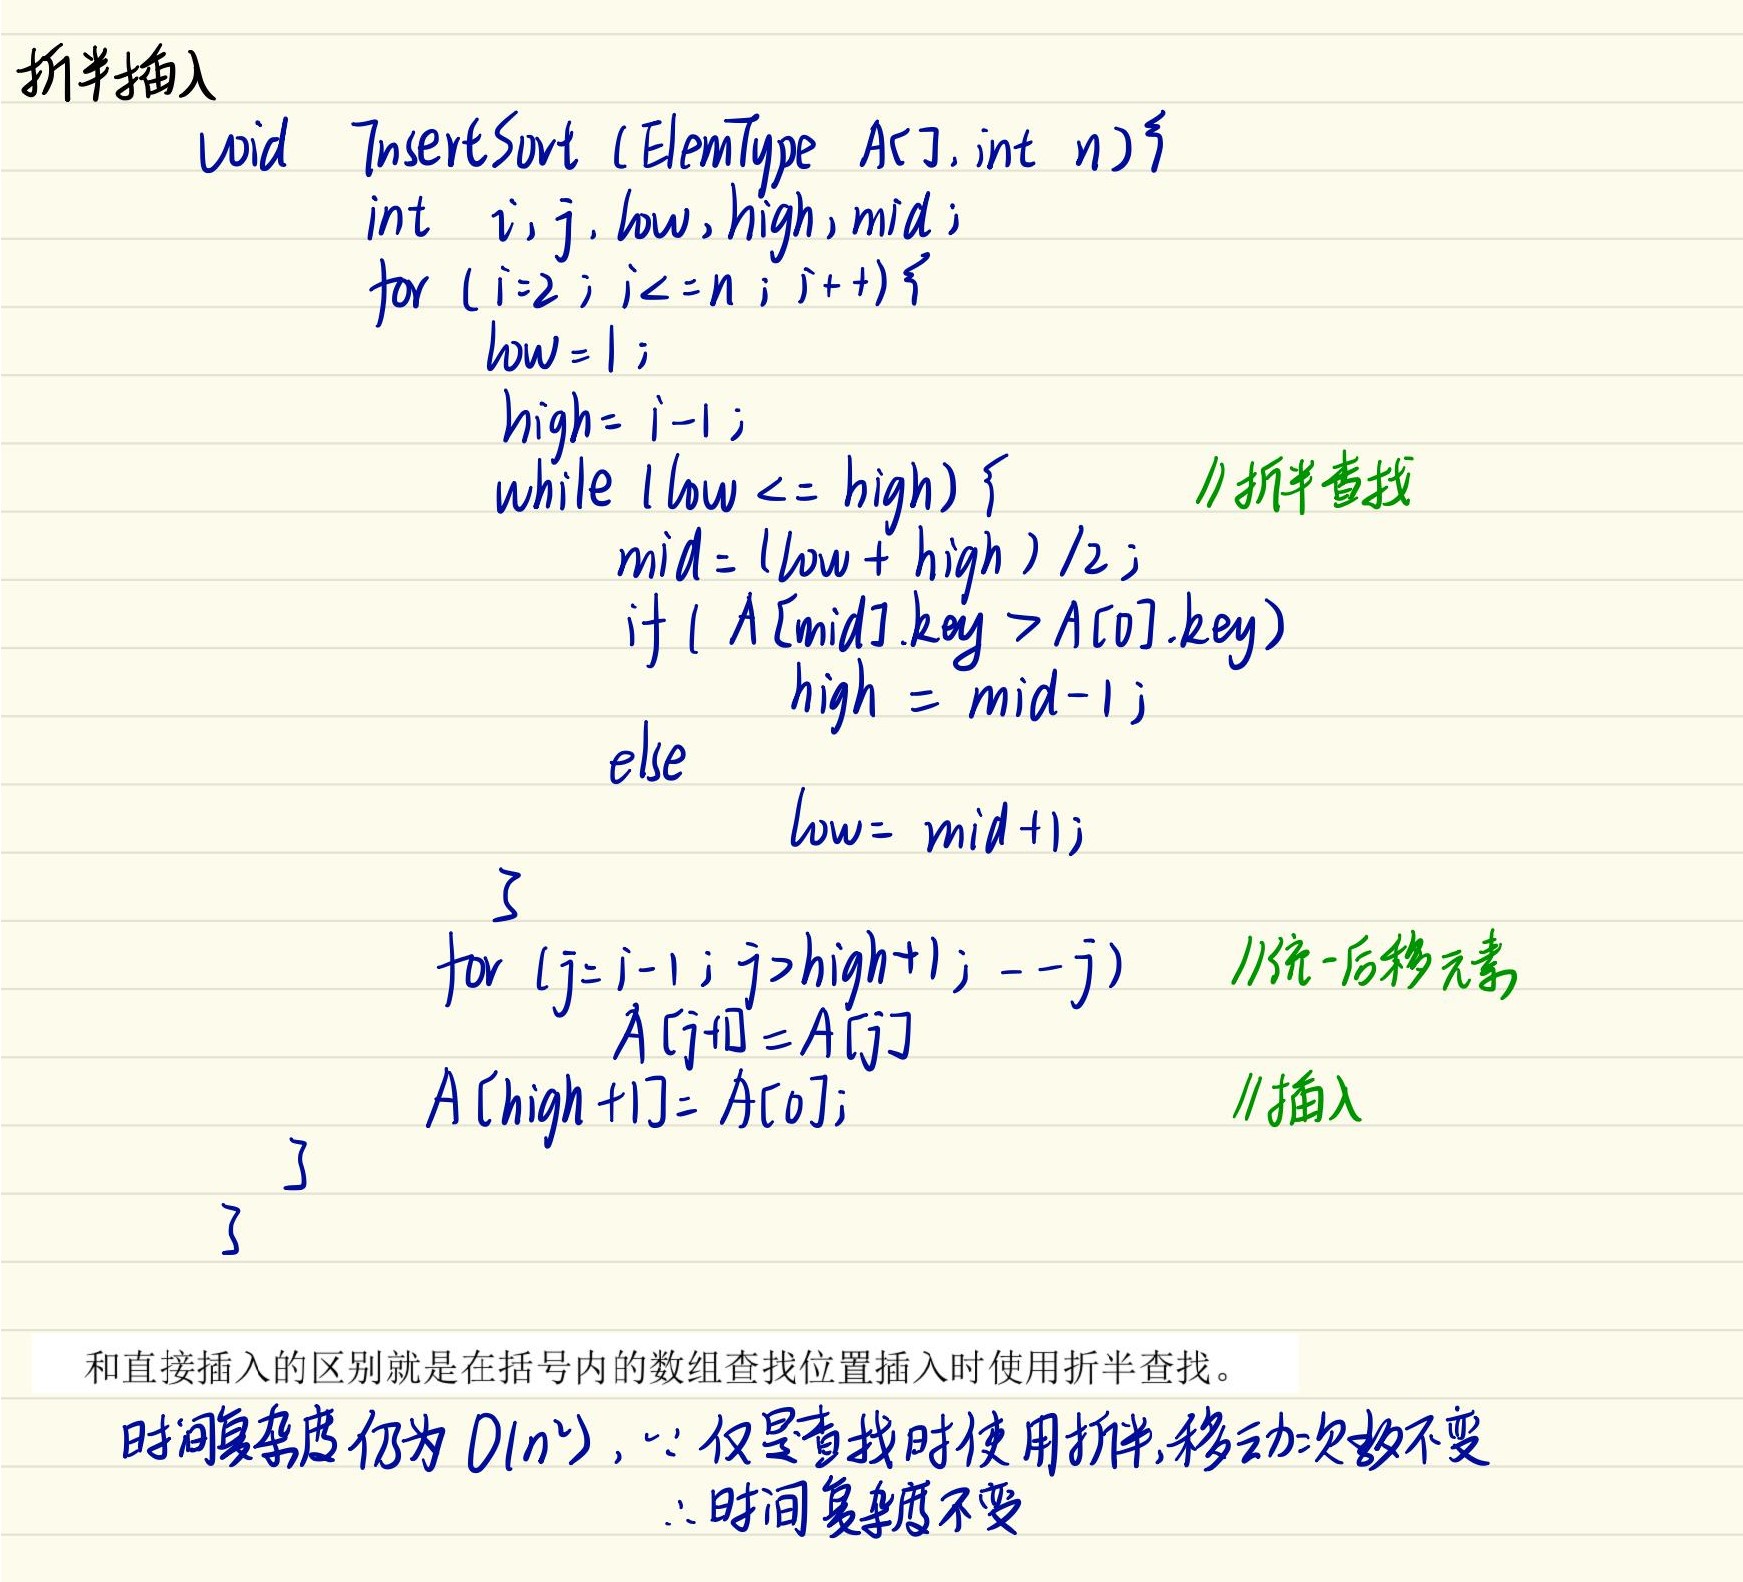 折半插入
void InsertSort (ElemType A[], int n){
int i, j, low, high, mid;
for (i=2; i<=n; i++){
low=1;
high= i-1;
while (low <= high) { //折半查找
mid=(low+high)/2;
if( A[mid].key > A[0].key)
high = mid-1;
else
low= mid+1;
}
for (j=i-1; j>high+1; --j) //统一后移元素
A[j+1]=A[j]
A[high+1]= A[0]; //插入
}
}
和直接插入的区别就是在括号内的数组查找位置插入时使用折半查找。
时间复杂度仍为O(n²), ∵ 仅是查找时使用折半,移动次数不变
∴时间复杂度不变